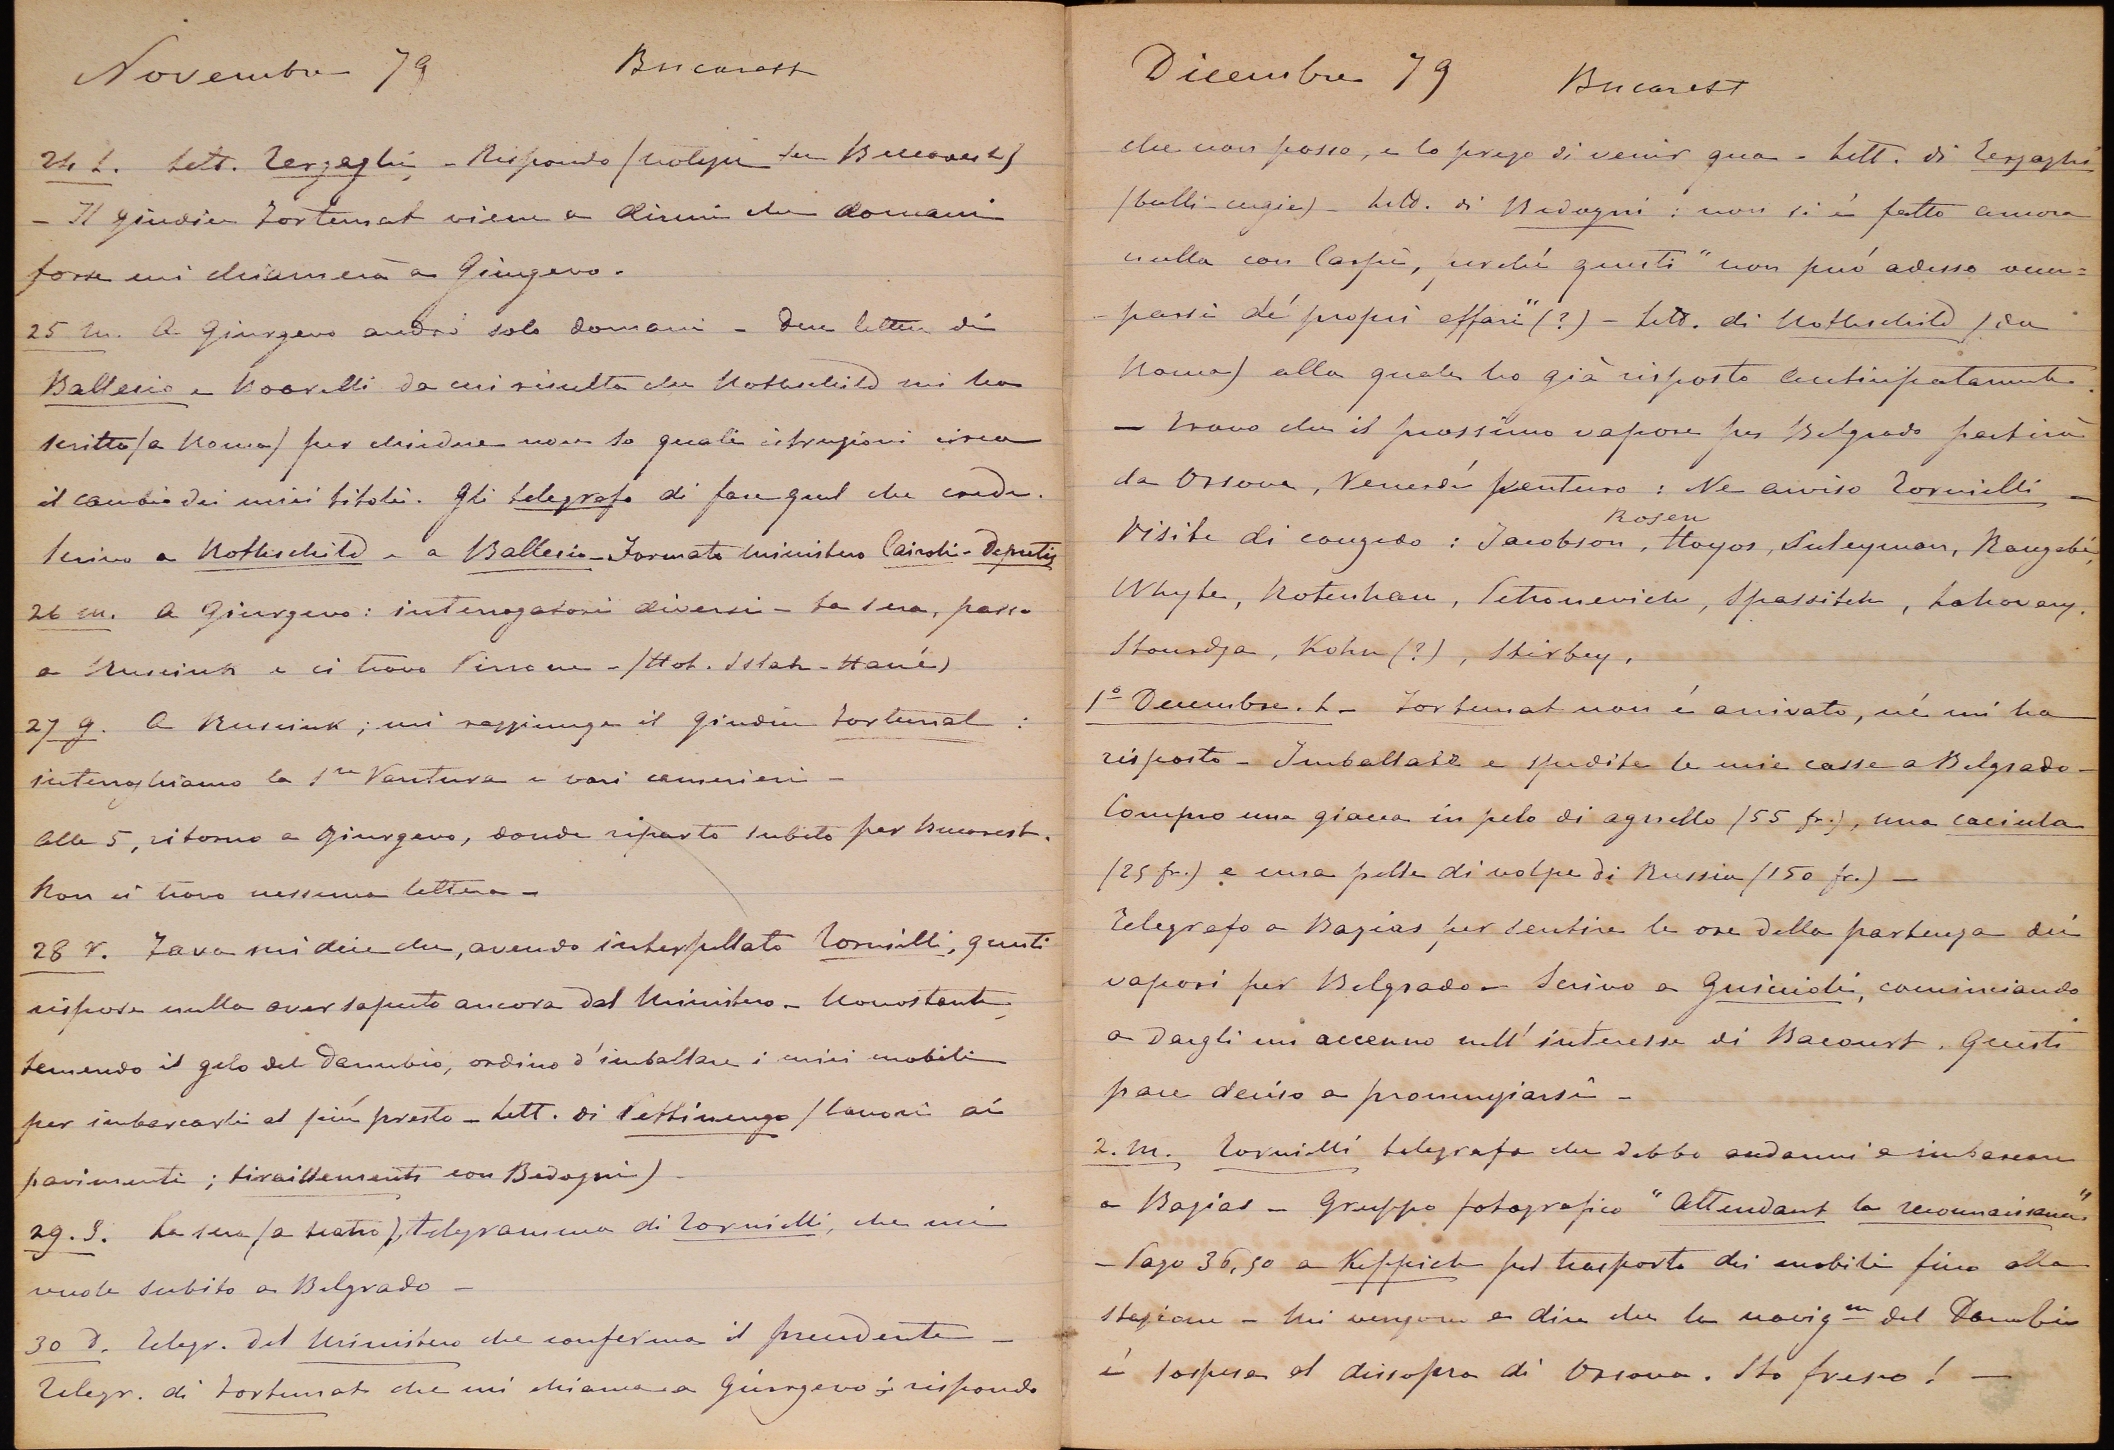 Novembre 79 Bucarest
24 L. Lett. Terzaghi - Rispondo (notizie su Bucarest)
- Il giudice Fortunat viene a dirmi che domani
forse mi chiamerà a Giurgevo.
25 M. A Giurgevo andrò solo domani - Due lettere di
Ballesio e Noarelli da cui risulta che Rothschild mi ha
scritto (a Roma) per chiedere non so quali istruzioni circa
il cambio dei miei titoli. Gli telegrafo di fare quel che crede.
Scrivo a Rothschild e a Ballesio - Formato Ministero Cairoli-Depretis
26 M. A Giurgevo: interrogatorii diversi - La sera, passo
a Rusciuk e ci trovo - (Hot. Islah-Hané)
27 G. A Rusciuk; mi raggiunge il giudice Fortunat:
interroghiamo la Sra Vantura e vari camerieri -
Alle 5, ritorno a Giurgevo, donde riparto subito per Bucarest.
Non ci trovo nessuna lettera -
28 V. Fava mi dice che, avendo interpellato Tornielli, questi
rispose nulla aver saputo ancora dal Ministero - Nonostante,
temendo il gelo del Danubio, ordino d'imballare i miei mobili
per imbarcarli al più presto - Lett. di Pettinengo (lavori ai
pavimenti; tiraillements con Bedogni)
29. S. La sera (a teatro), telegramma di Tornielli, che mi
vuole subito a Belgrado -
30 D. Telegr. del Ministero che conferma il precedente -
Telegr. di Fortunat che mi chiama a Giurgevo: rispondo
Dicembre 79 Bucarest
che non posso, e lo prego di venir qua - Lett. di Terzaghi
- Lett. di Bedogni: non si è fatto ancora
nulla con Carpi, perché questi "non può adesso occu=
-parsi de' propri affari" (?) - Lett. di Rothschild (da
Roma) alla quale ho già risposto anticipatamente.
- Trovo che il prossimo vapore per Belgrado partirà
da Orsova, Venerdì venturo: Ne avviso Tornielli -
Rosen
Visite di congedo: Jacobson, Hoyos, Suleyman, Rangabé,
Whyte, Rotenhan, Petronevich, Spassitch, Lahovary,
Stourdza, Kohn (?), Stirbey.
1º Decembre. L - Fortunat non è arrivato, né mi ha
risposto - Imballate e spedite le mie casse a Belgrado -
Compro una giacca in pelo di agnello (55 fr.), una caciula
(25 fr.) e una pelle di volpe di Russia (150 fr.) -
Telegrafo a Bazias per sentire le ore della partenza dei
vapori per Belgrado - Scrivo a Guiccioli, cominciando
a dargli un accenno nell'interesse di Bacourt. Questi
pare deciso a pronunziarsi -
2. M. Tornielli telegrafa che debbo andarmi a imbarcare
a Bazias - Gruppo fotografico "Attendant la reconnaissance"
- Pago 36,50 a Keppich pel trasporto dei mobili fino alla
stazione - Mi vengono a dire che la navigne del Danubio
è sospesa al dissopra di Orsova. Sto fresco! -